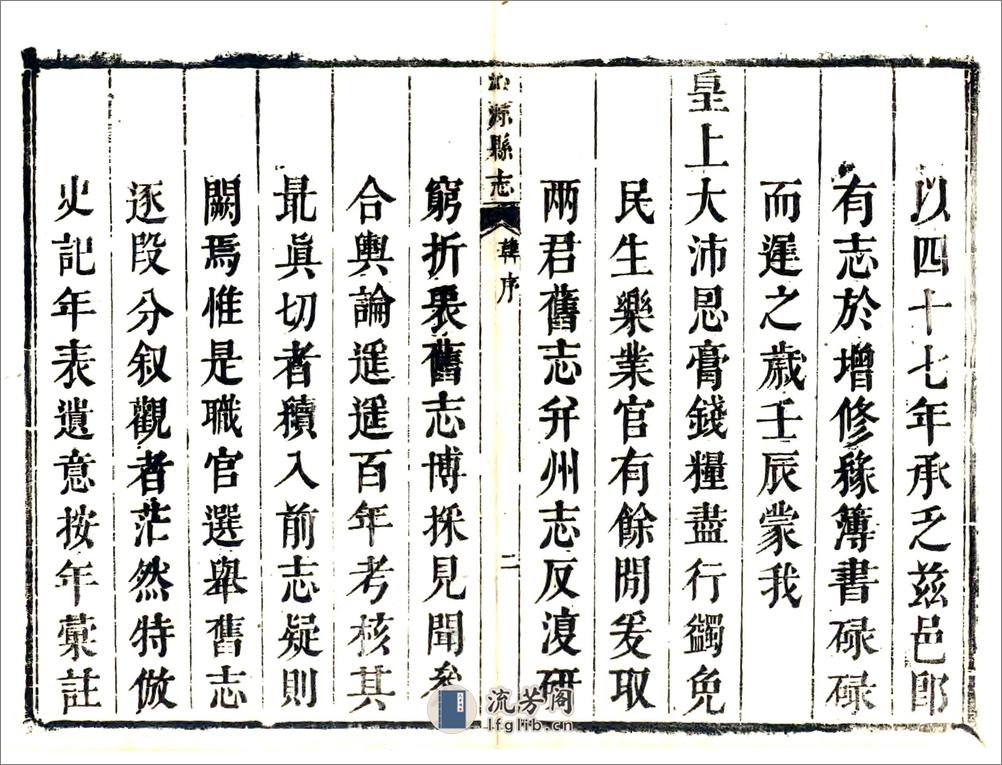 以四十七年承乏茲邑即
有志於增修緣簿書碌碌
而遲之歲壬辰蒙我
皇上大沛恩膏錢糧盡行蠲免
民生樂業官有餘閒爰取
兩君舊志幷州志反復研
沁源縣志
韓序
二
窮折衷舊志博採見聞參
合輿論遥遥百年考核其
最眞切者續入前志疑則
闕焉惟是職官選舉舊志
逐段分叙觀者茫然特倣
史記年表遺意按年彙註
流芳阁
lfglib.cn